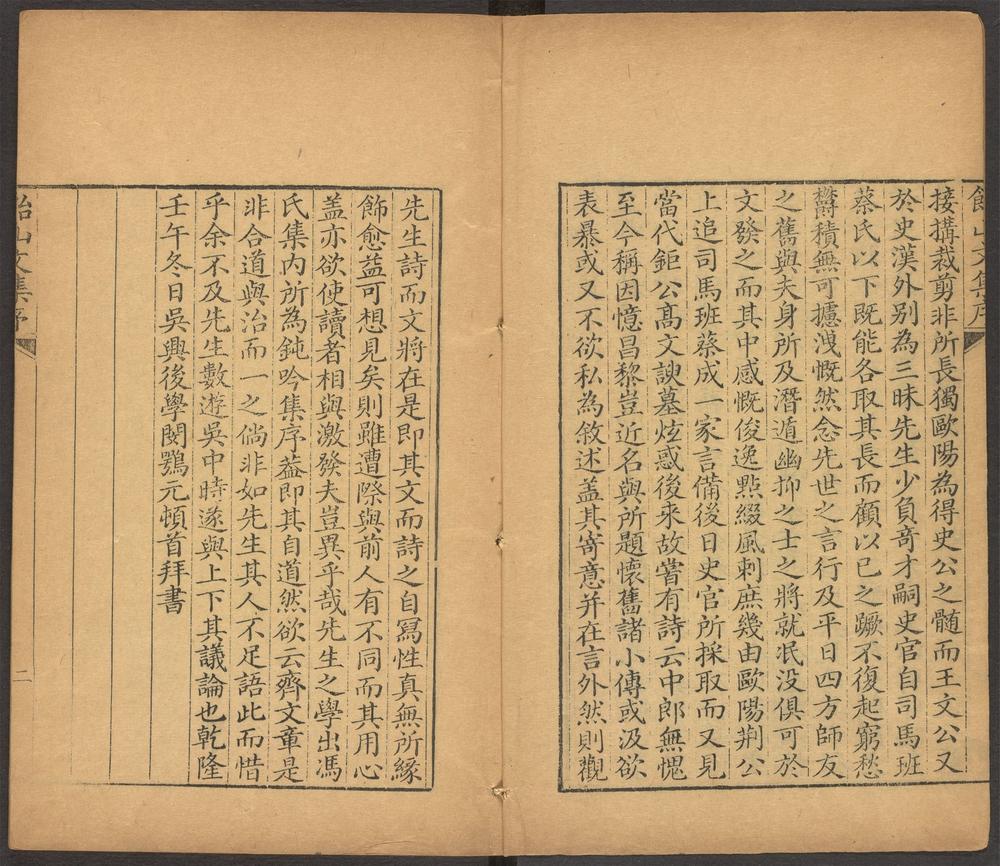 飴山文集序
接搆裁剪非所長獨歐陽為得史公之髓而王文公又
於史漢外别為三昧先生少負奇才嗣史官自司馬班
蔡氏以下既能各取其長而顧以已之蹶不復起窮愁
欝積無可攄洩慨然念先世之言行及平日四方師友
之舊與夫身所及潛遁幽抑之士之將就泯没俱可於
文發之而其中感慨俊逸點綴風刺庶幾由歐陽荆公
上追司馬班蔡成一家言備後日史官所採取而又見
當代鉅公髙文諛墓炫惑後来故嘗有詩云中郎無愧
至今稱因憶昌黎豈近名與所題懷舊諸小傳或汲欲
表暴或又不欲私為敘述盖其寄意并在言外然則觀
先生詩而文將在是即其文而詩之自冩性真無所緣
飾愈益可想見矣則雖遭際與前人有不同而其用心
盖亦欲使讀者相與激發夫豈異乎哉先生之學出馮
氏集内所為鈍吟集序葢即其自道然欲云齊文章是
非合道與治而一之倘非如先生其人不足語此而惜
乎余不及先生數遊吳中時遂與上下其議論也乾隆
壬午冬日吳興後學閔鶚元頓首拜書
飴山文集序
二